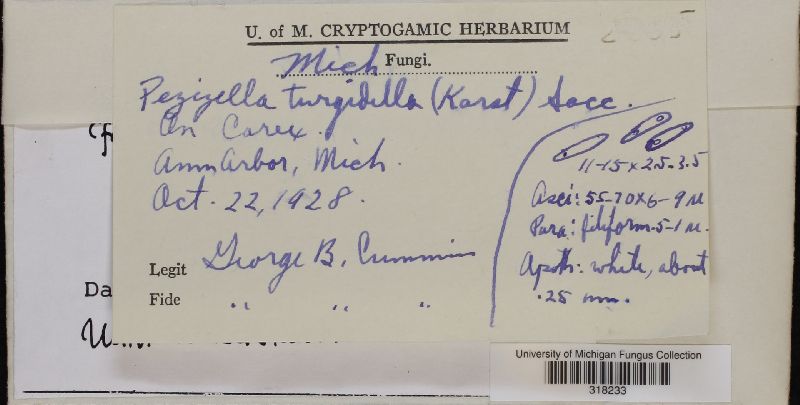 U. of M. CRYPTOGAMIC HERBARIUM
Mich Fungi.
Pezizella turgidella (Karst) Sacc.
On Carex.
Ann Arbor, Mich.
Oct. 22, 1928.
Legit George B. Cummins
Fide " " "
11-15 x 2.5-3.5
Asci: 55-70 x 6-9 µ
Para: filiform .5-1 µ.
Apoth: white, about
.25 mm.
Da
University of Michigan Fungus Collection
318233